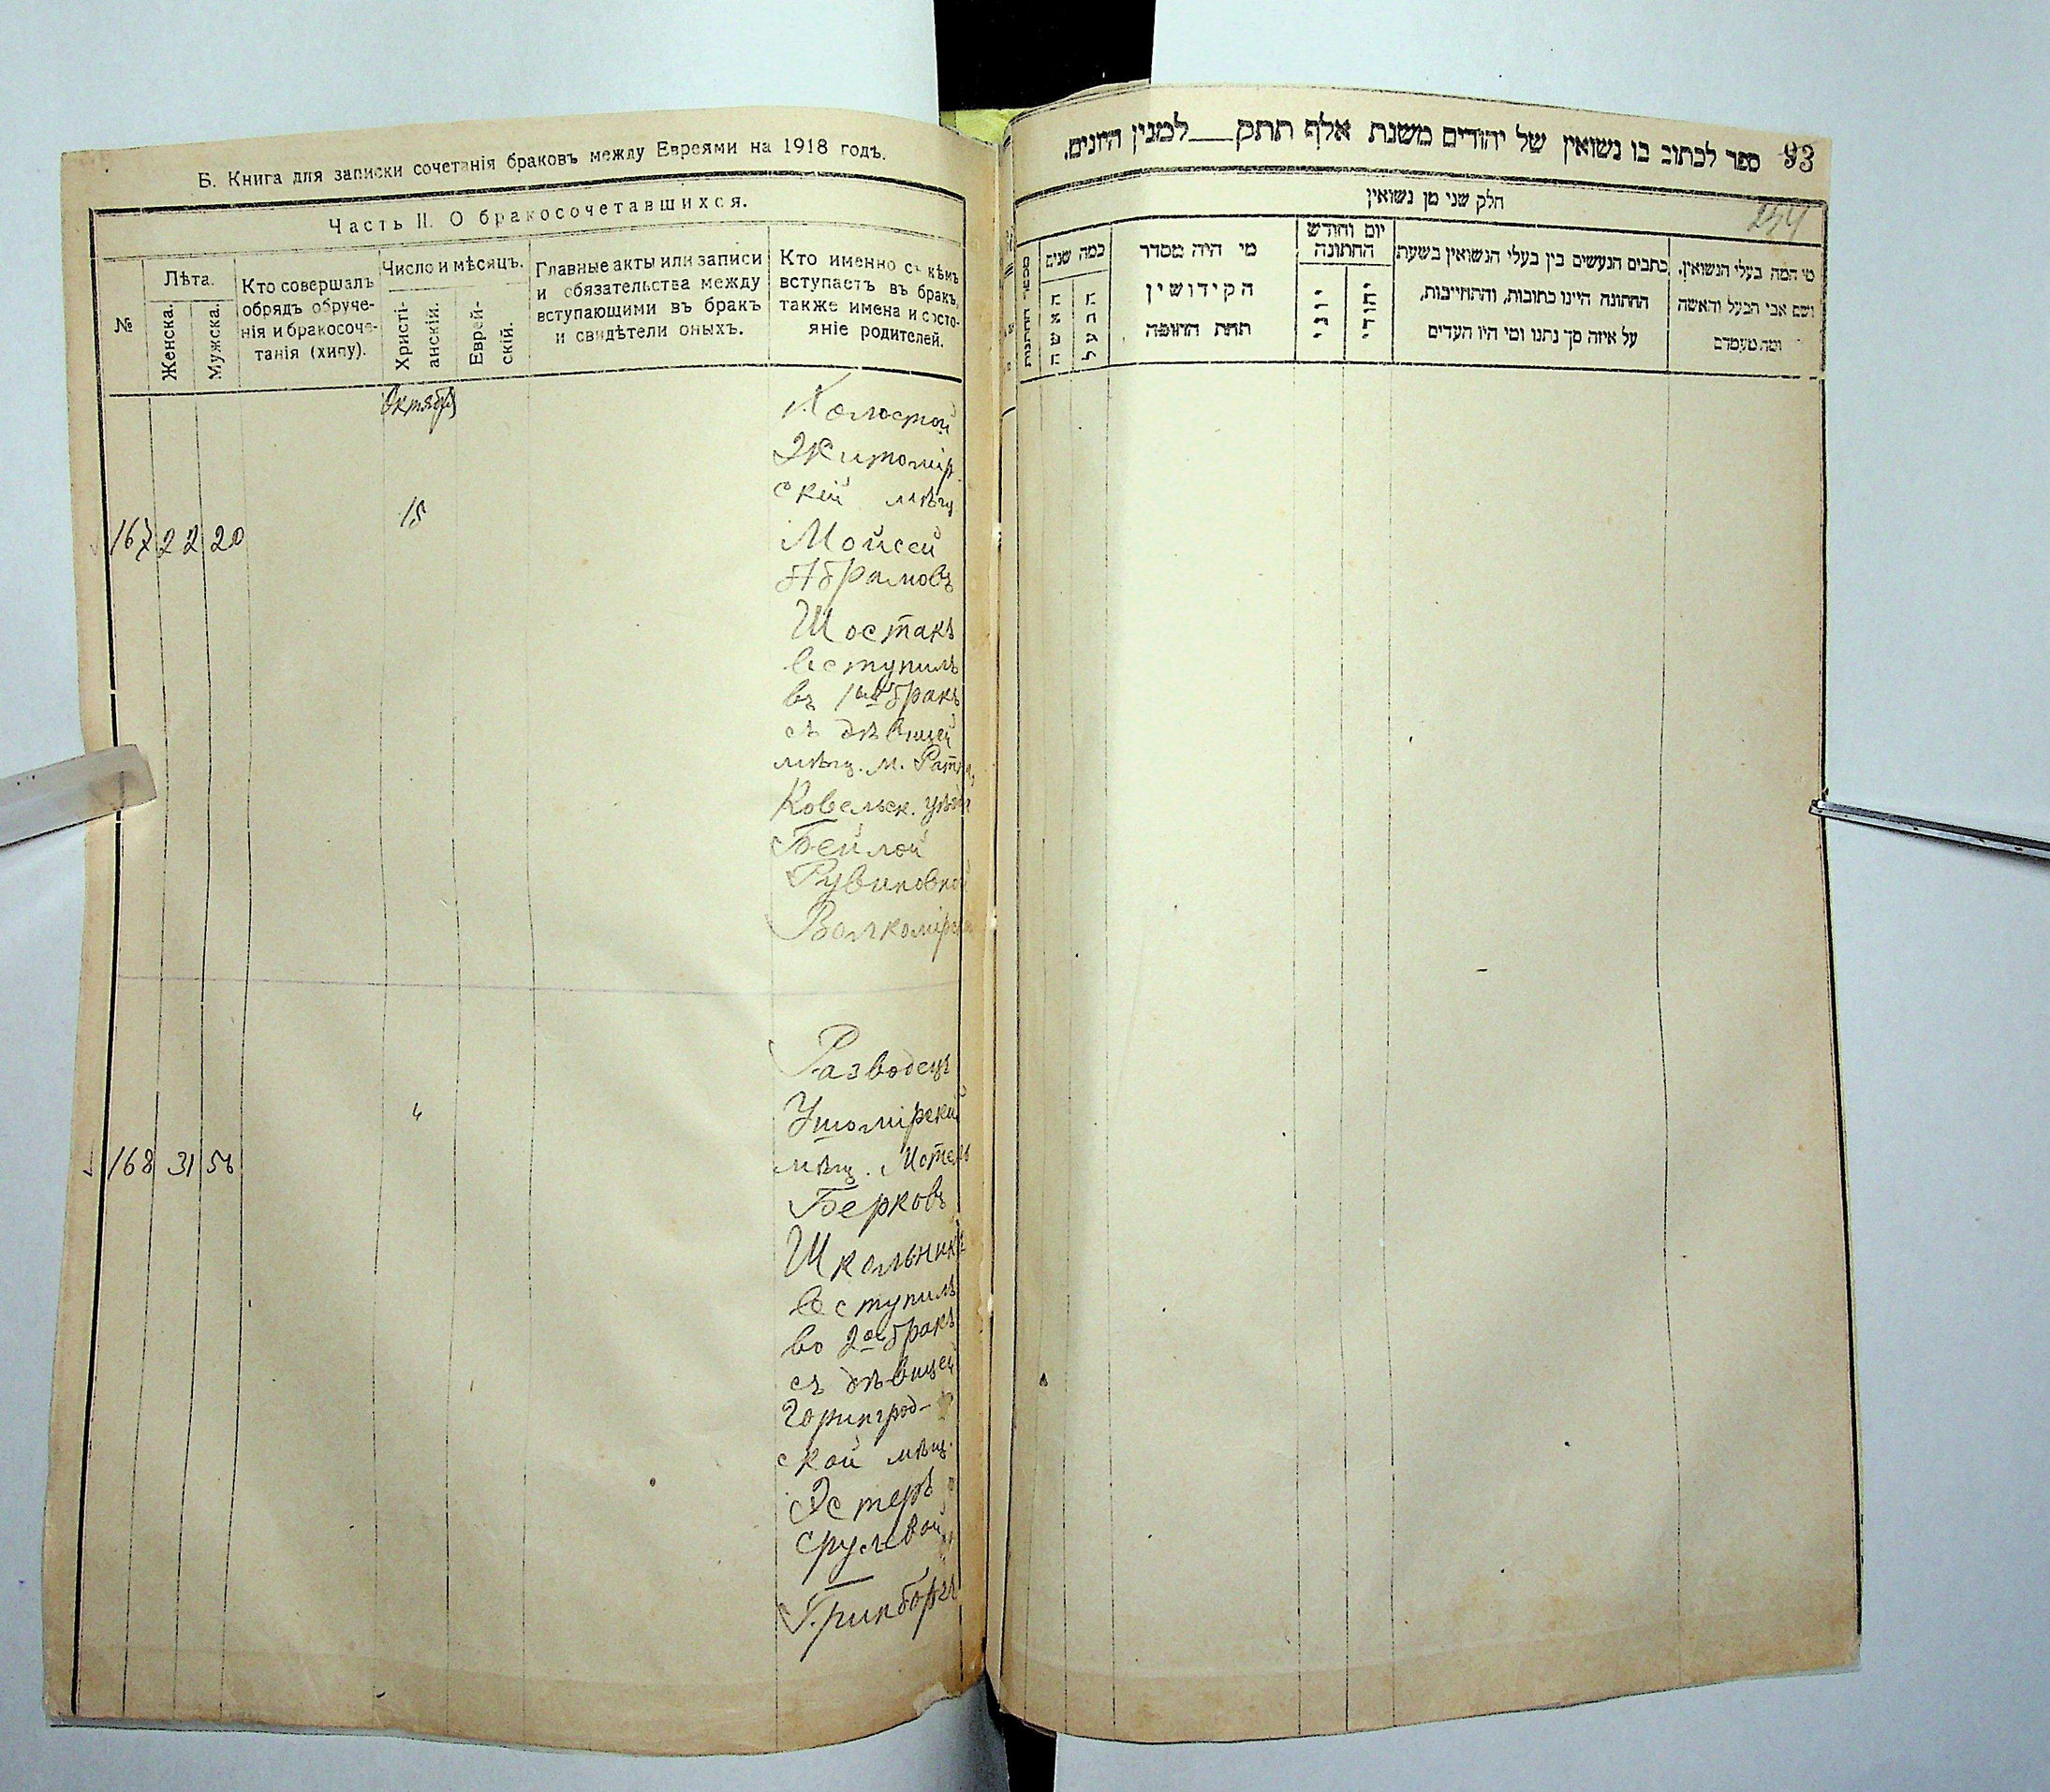 Б. Книга для записки сочетанія браковъ между Евреями на 1918 годъ.
Часть II. О бракосочетавшихся.
№
Лѣта.
Женска.
Мужска.
Кто совершалъ
обрядъ обруче-
нія и бракосоче-
танія (хипу).
Число и мѣсяцъ.
Христі-
анскій.
Еврей-
скій.
Главные акты или записи
и обязательства между
вступающими въ бракъ
и свидѣтели оныхъ.
Кто именно съ кѣмъ
вступаетъ въ бракъ,
также имена и состо-
яніе родителей.
Октября
Холостой
Житомір
скій мѣщ
15
167 22 20
Мойсей
Абрамовъ
Шостакъ
вступилъ
въ 1ый бракъ
съ дѣвицей
мѣщ. м. Ратно,
Ковельск. уѣзд
Бейлой
Рувиновной
Волкомірск
Разводецъ
Ушомірскій
4
168 31 56
мѣщ. Мотель
Берковъ
Школьникъ
вступилъ
во 2ой бракъ
съ дѣвицей
Горинград-
ской мѣщ.
Эстеръ
Срулевой
Гринборгъ
ספר לכתוב בו נשואין של יהודים משנת אלף תתק___למנין היונים.
93
254
חלק שני מן נשואין
מספר החתונות
כמה שנים
האשה
הבעל
מי היה מסדר
הקידושין
תחת החופה
יום וחודש
החתונה
יוני
יהודי
כתבים הנעשים בין בעלי הנשואין בשעת
החתונה היינו כתובות, והתחייבות,
על איזה סך נתנו ומי היו העדים
מי המה בעלי הנשואין,
ושם אבי הבעל והאשה
ומה מעמדם